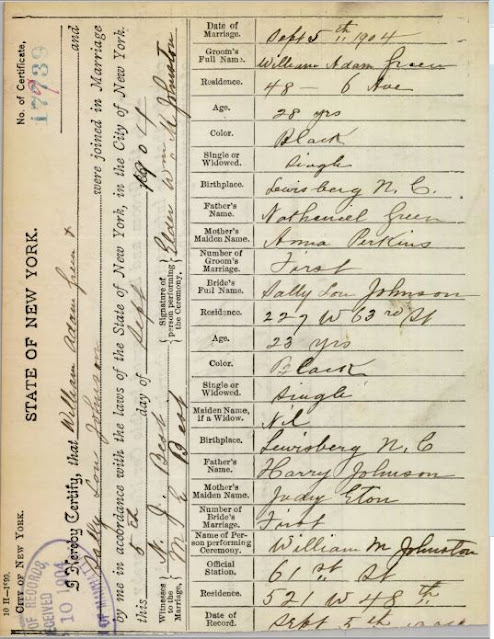 10 H-1'00.
CITY OF NEW YORK.
STATE OF NEW YORK.
No. of Certificate,
17739
I Hereby Certify, that William Adam Green & and
Sally Lou Johnson were joined in Marriage
by me in accordance with the laws of the State of New York, in the City of New York,
this 5th day of Sept 1904
Witnesses to the Marriage,
N. J. Best
M E Best
Signature of person performing the Ceremony.
Elder Wm M Johnston
OF RECORDS,
RECEIVED
10
OF MANHATTAN
Date of Marriage. Sept 5th 1904
Groom's Full Name. William Adam Green
Residence. 48 - 6 Ave
Age. 28 yrs
Color. Black
Single or Widowed. Single
Birthplace. Lewisberg N. C.
Father's Name. Nathaniel Green
Mother's Maiden Name. Anna Perkins
Number of Groom's Marriage. First
Bride's Full Name. Sally Lou Johnson
Residence. 227 W 63rd St
Age. 23 yrs
Color. Black
Single or Widowed. Single
Maiden Name, if a Widow. Nil
Birthplace. Lewisberg N. C
Father's Name. Harry Johnson
Mother's Maiden Name. Judy Eton
Number of Bride's Marriage. First
Name of Person performing Ceremony. William M Johnston
Official Station. 61st St
Residence. 521 W 48th
Date of Record. Sept 5th